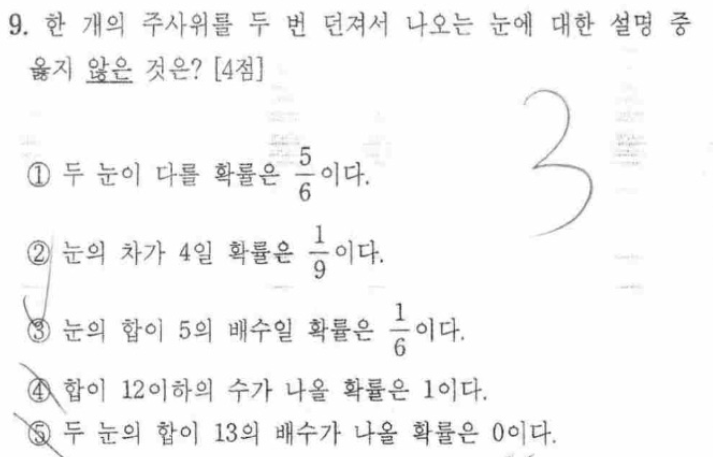 9. 한 개의 주사위를 두 번 던져서 나오는 눈에 대한 설명 중
옳지 않은 것은? [4점]
3
① 두 눈이 다를 확률은 5/6이다.
② 눈의 차가 4일 확률은 1/9이다.
③ 눈의 합이 5의 배수일 확률은 1/6이다.
④ 합이 12이하의 수가 나올 확률은 1이다.
⑤ 두 눈의 합이 13의 배수가 나올 확률은 0이다.